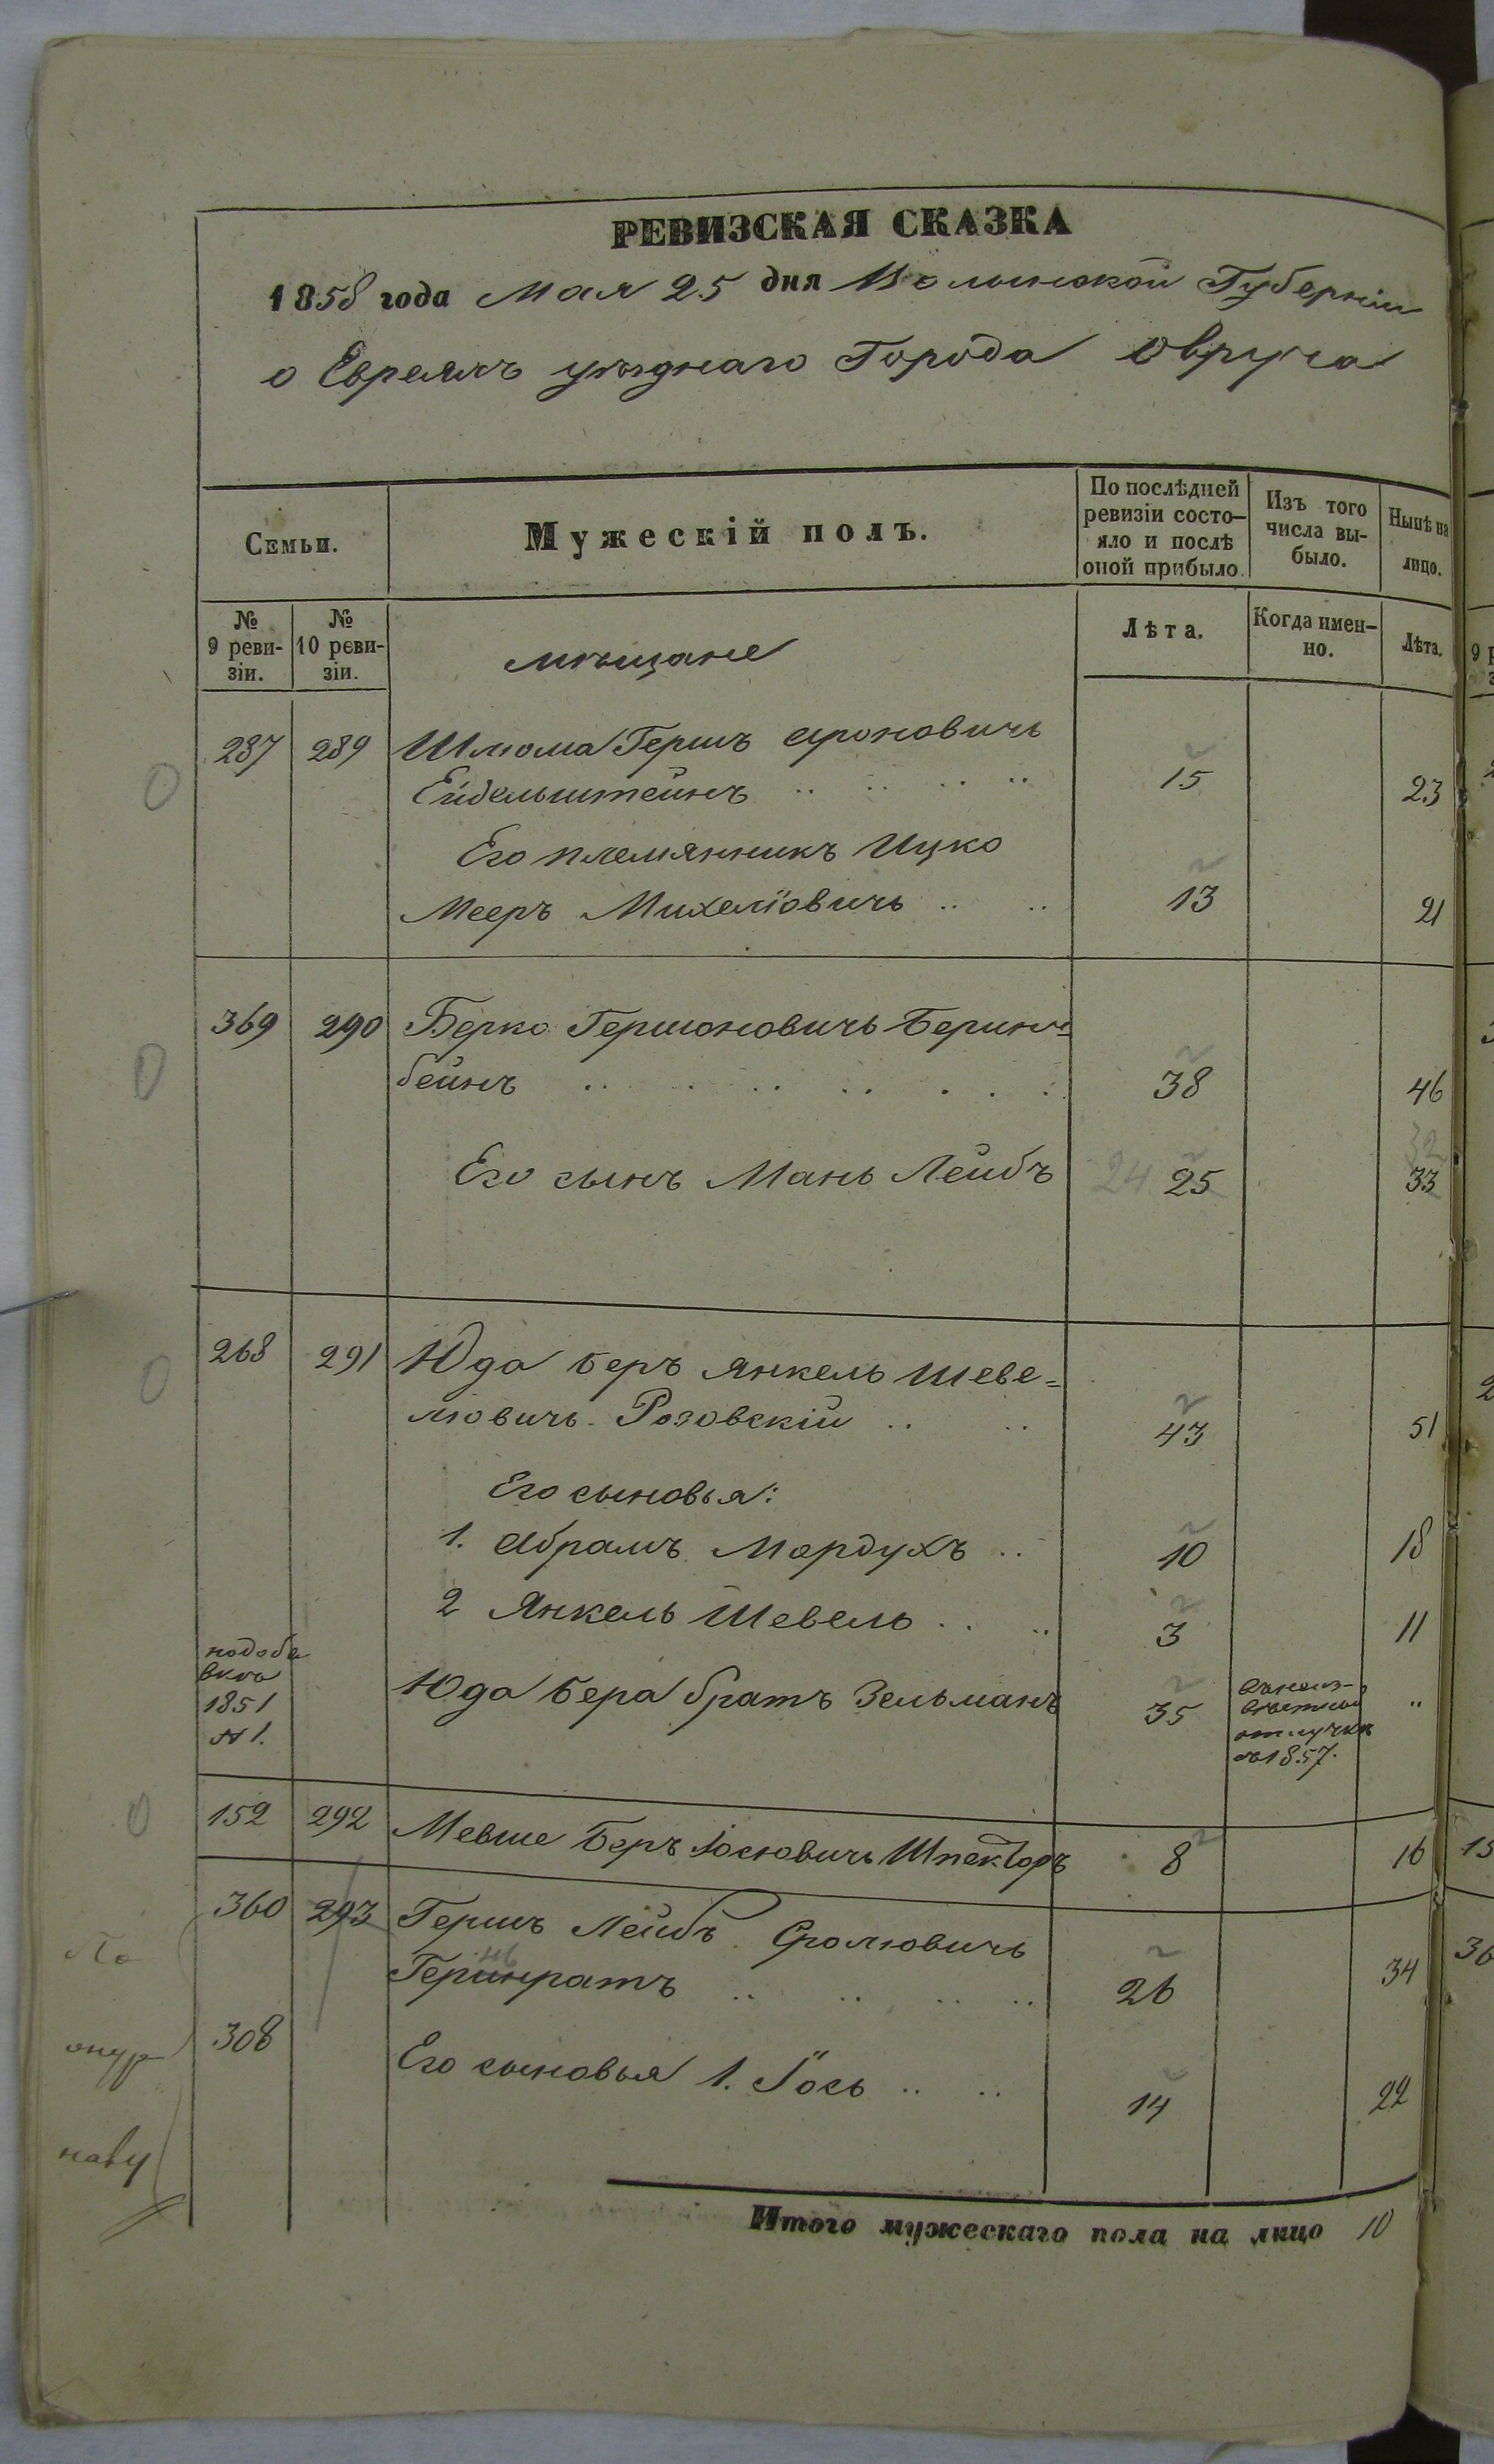 РЕВИЗСКАЯ СКАЗКА
1858 года Мая 25 дня Волынской Губерніи
о Евреяхъ уѣзднаго Города Овруча
Семьи.
Мужескій полъ.
По послѣдней ревизіи состо-
яло и послѣ оной прибыло.
Изъ того числа вы-
было.
Нынѣ на лицо.
№ 9 реви-
зіи.
№ 10 реви-
зіи.
мѣщане
Лѣта.
Когда имен-
но.
Лѣта.
287 289 Шлома Гершъ Ароновичь
Ейдельштейнъ 15 23
Его племянникъ Ицко
Мееръ Михелiовичь 13 21
369 290 Берко Гершоновичь Беринъ=
бейнъ 38 46
32
Его сынъ Мань Лейбъ 24 25 33
268 291 Юда Беръ Янкель Шеве=
люовичь Розовскій 43 51
Его сыновья:
1. Абрамъ Мордухъ 10 18
2 Янкель Шевель 3 11
1851
№ 1.
Юда Бера братъ Зельманъ 35
въ неиз-
вѣстной
отлучкѣ
съ 1857.
152 292 Мевше Беръ Іосювичь Шпекторъ 8 16
360 293 Гершъ Лейбъ Сролювичь
Геринратъ 26 34
308 Его сыновья 1. Іось 14 22
Итого мужескаго пола на лицо 10